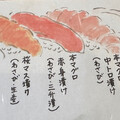 本マグロ
中トロ漬け
（わさび）
本マグロ
赤身漬け
（わさび・三升漬）
桜マス漬り
（わさび・生姜）